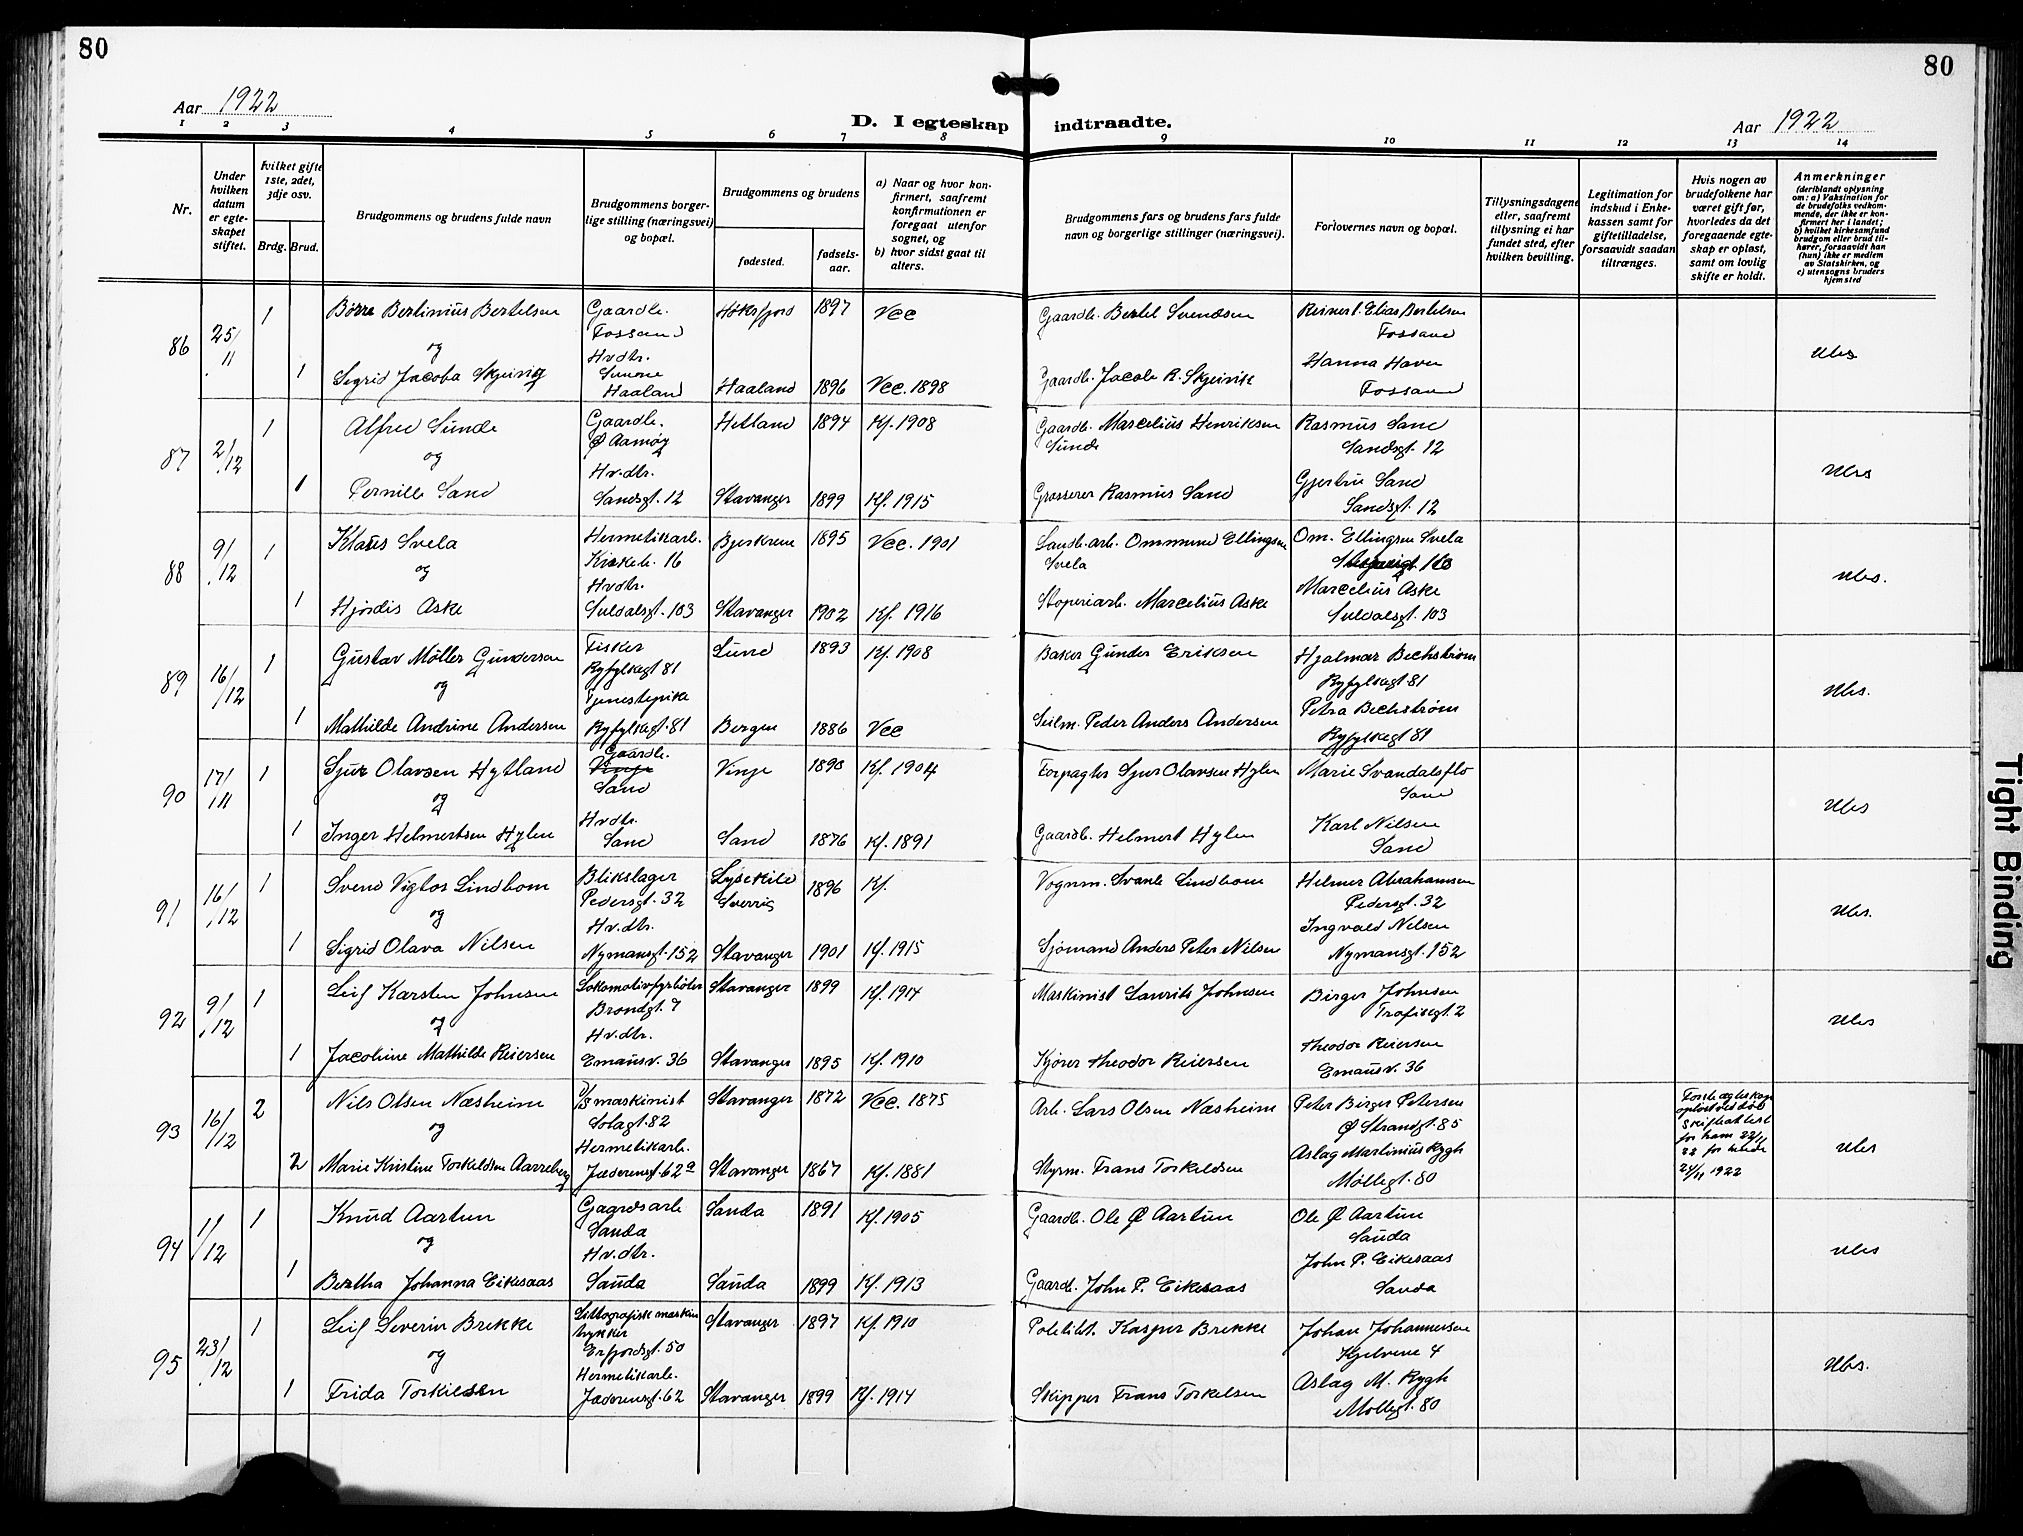 80
80
Aar 1922
D. I egteskap indtraadte.
Aar 1922
1 2 3 4 5 6 7 8 9 10 11 12 13 14
Nr.
Under hvilken datum er egte-skapet stiftet.
hvilket gifte 1ste, 2det, 3dje osv.
Brdg. Brud.
Brudgommens og brudens fulde navn
Brudgommens borger-lige stilling (næringsvei) og bopæl.
Brudgommens og brudens
fødested.
fødsels-aar.
a) Naar og hvor kon-firmert, saafremt konfirmationen er foregaat utenfor sognet, og
b) hvor sidst gaat til alters.
Brudgommens fars og brudens fars fulde navn og borgerlige stillinger (næringsvei).
Forlovernes navn og bopæl.
Tillysningsdagene eller, saafremt tillysning ei har fundet sted, efter hvilken bevilling.
Legitimation for indskud i Enke-kassen samt for giftetilladelse, forsaavidt saadan tiltrænges.
Hvis nogen av brudefolkene har været gift før, hvorledes da det foregaaende egte-skap er opløst, samt om lovlig skifte er holdt.
Anmerkninger
(deriblandt oplysning om: a) Vaksination for de brudefolks vedkom-mende, der ikke er kon-firmert her i landet; b) hvilket kirkesamfund brudgom eller brud til-hører, forsaavidt han (hun) ikke er medlem av Statskirken, og c) utensogns bruders hjemsted
86 25/11 1 Børre Bertinius Bertelsen Gaardb. Fossand Høksfjord 1897 Vcc Gaardb. Bertel Svendsen Reinert Elias Bertelsen Fossand Ubs
og
1 Sigrid Jacoba Skjeivig Hvdtr. Haaland Haaland 1896 Vcc. 1898 Gaardb. Jacob R. Skjeivik Hanna Haver Fossand
87 2/12 1 Alfred Sunde Gaardb. Ø Aamøy Hetland 1894 Kf. 1908 Gaardb. Marcelius Henriksen Sunde Rasmus Sand Sandsgt. 12 Ubs
og
1 Pernille Sand Hv.dtr. Sandsgt. 12 Stavanger 1899 Kf. 1915 Grosserer Rasmus Sand Gjertru Sand Sandsgt. 12
88 9/12 1 Klaus Svela Hermetikarb. Kirkeb. 16 Bjerkrem 1895 Vcc. 1901 Landb.arb. Ommund Ellingsen Svela Om. Ellingsen Svela Ubs.
og
1 Hjørdis Aske Hvdtr. Suldalsgt. 103 Stavanger 1902 Kf. 1916 Støperiarb. Marcelius Aske Marcelius Aske Suldalsgt. 103
89 16/12 1 Gustav Møller Gundersen Fisker Ryfylkegt 81 Lund 1893 Kf. 1908 Baker Gunder Eriksen Hjalmar Bechstrøm Ryfylkegt. 81 Ubs.
og
1 Mathilde Andrine Andersen Tjenestepike Ryfylkegt. 81 Bergen 1886 Vcc Seilm. Peder Anders Andersen Petra Bechstrøm Ryfylkegt 81
90 17/11 1 Sjur Olavsen Hytland Gaardb. Vinje Sand Vinje 1890 Kf. 1904 Forpagter Sjur Olavsen Hylen Marie Svandalsflo Sand Ubs
og
1 Inger Helmertsen Hylen Hvdtr. Sand Sand 1876 Kf. 1891 Gaardb. Helmert Hylen Karl Nilsen Sand
91 16/12 1 Svend Vigtor Lindbom Blikslager Pedersgt. 32 Lysekild Sverrig 1896 Kf. Vognm. Svante Lindbom Helmer Abrahamsen Pedersgt. 32 Ubs.
og
1 Sigrid Olava Nilsen Hv.dtr. Nymansgt. 152 Stavanger 1901 Kf. 1915 Sjømand Anders Peter Nilsen Ingvald Nilsen Nymansgt. 152
92 9/12 1 Leif Karsten Johnsen Lokomotivfyrbøter Brondgt. 7 Stavanger 1899 Kf. 1914 Maskinist Laurits Johnsen Birger Johnsen Trofasegt. 2 Ubs
og
1 Jacobine Mathilde Reiersen Hv.dtr. Emausv. 36 Stavanger 1895 Kf. 1910 Kjører Theodor Reiersen Theodor Reiersen Emausv. 36
93 16/12 2 Nils Olsen Næsheim D/S maskinist Solagt. 82 Stavanger 1872 Vcc. 1875 Arb. Lars Olsen Næsheim Peter Birger Petersen Ø Strandgt. 85 Første ægteskap opløst ved død Skifteattest for ham 22/11 22 for hende 24/11 1922 Ubs
og
2 Marie Kristine Torkeldsen Aarreberg Hermetikarb. Jæderensgt. 62a Stavanger 1867 Kf. 1881 Styrm. Frans Torkeldsen Aslag Martinius Rygh Møllegt. 80
94 1/12 1 Knud Aartun Gaardsarb Sauda Sauda 1891 Kf. 1905 Gaardb. Ole Ø Aartun Ole Ø Aartun Sauda Ubs
og
1 Bertha Johanna Eikesaas Hv.dtr. Sauda Sauda 1899 Kf. 1913 Gaardb. John P. Eikesaas John P. Eikesaas Sauda
95 23/12 1 Leif Severin Brekke Littografisk maskintrykker Erfjordsgt. 50 Stavanger 1897 Kf. 1910 Politibt. Kasper Brekke Johan Johannessen Kjelvene 4 Ubs.
og
1 Frida Torkildsen Hermetikarb. Jæderensgt. 62 Stavanger 1899 Kf. 1914 Skipper Frans Torkelsen Aslag M. Rygh Møllegt. 80
Tight Binding